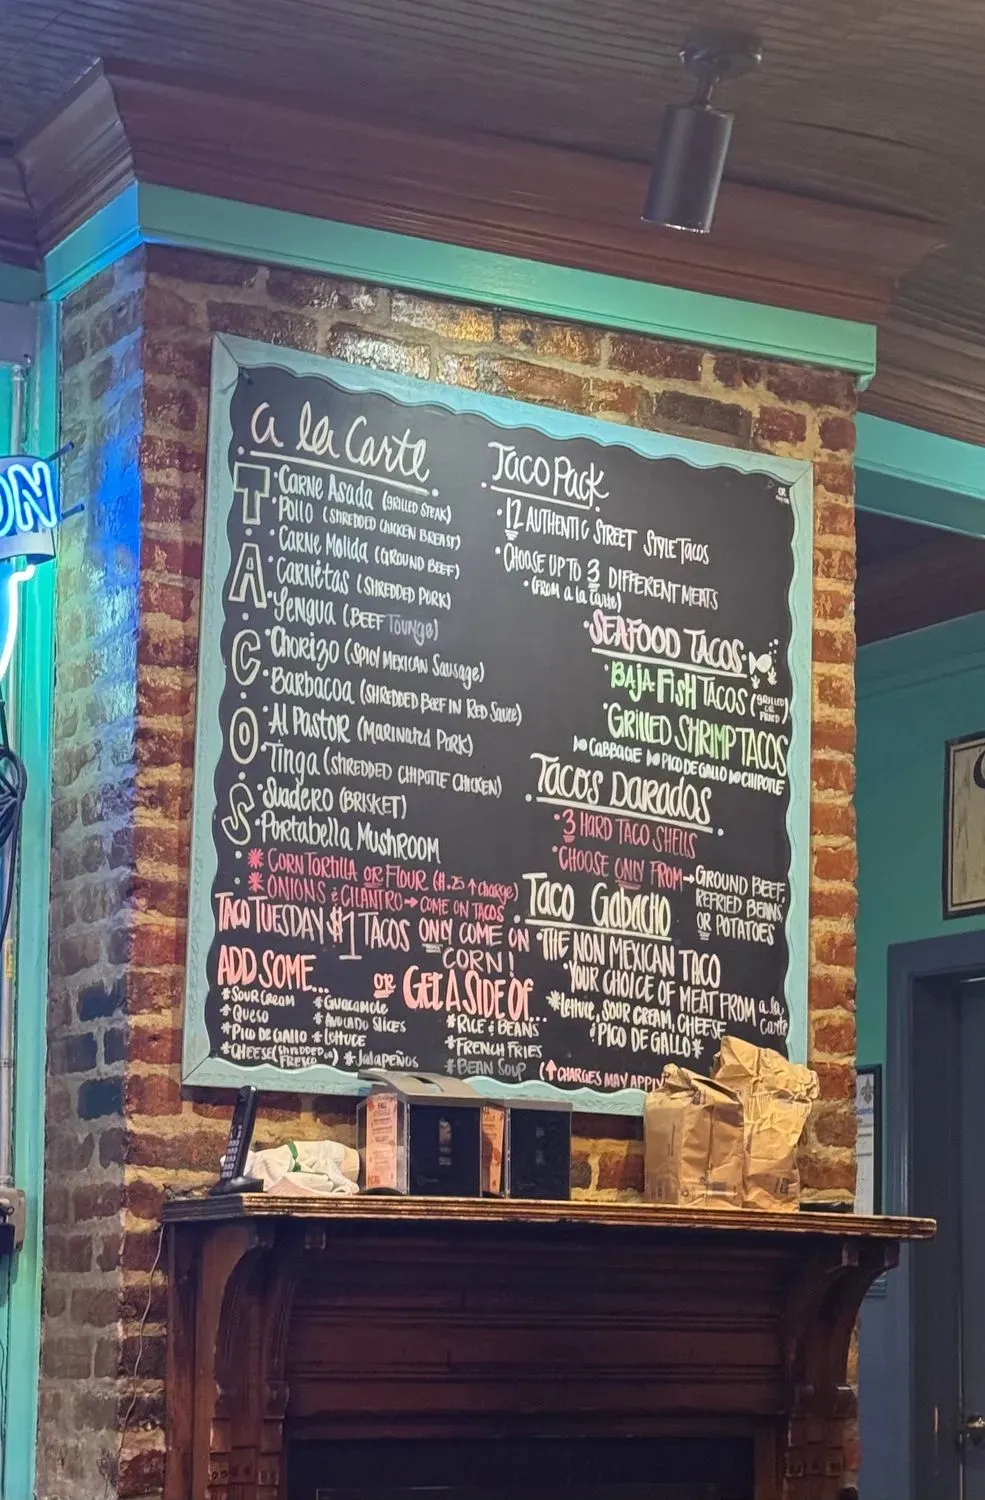 ON
a la Carte
TACOS
• Carne Asada (GRILLED STEAK)
• Pollo (SHREDDED CHICKEN BREAST)
• Carne Molida (GROUND BEEF)
• Carnitas (SHREDDED PORK)
• Lengua (BEEF Tounge)
• Chorizo (SPICY MEXICAN Sausage)
• Barbacoa (SHREDDED BEEF IN RED Sauce)
• Al Pastor (Marinated Pork)
• Tinga (SHREDDED CHIPOTLE CHICKEN)
• Suadero (BRISKET)
• Portabella Mushroom
* CORN TORTILLA OR FLOUR ($.25 ↑ charge)
* ONIONS & CILANTRO → COME ON TACOS
TACO TUESDAY $1 TACOS ONLY COME ON
CORN!
ADD SOME... OR GET A SIDE OF...
* SOUR CREAM
* QUESO
* PICO DE GALLO
* CHEESE (SHREDDED OR FRESCO)
* GUACAMOLE
* AVOCADO SLICES
* LETTUCE
* JALAPEÑOS
* RICE & BEANS
* FRENCH FRIES
* BEAN SOUP
(↑ CHARGES MAY APPLY
Taco Pack
• 12 AUTHENTIC STREET STYLE TACOS
• CHOOSE UP TO 3 DIFFERENT MEATS
• (FROM a la Carte)
• SEAFOOD TACOS •
• BAJA FISH TACOS (GRILLED OR FRIED)
• GRILLED SHRIMP TACOS
CABBAGE PICO DE GALLO CHIPOTLE
TACOS DARADOS
• 3 HARD TACO SHELLS
• CHOOSE ONLY FROM → GROUND BEEF,
REFRIED BEANS,
OR POTATOES
• Taco Gabacho
• THE NON MEXICAN TACO
• YOUR CHOICE OF MEAT FROM a la Carte
* Lettuce, SOUR CREAM, CHEESE
& PICO DE GALLO *